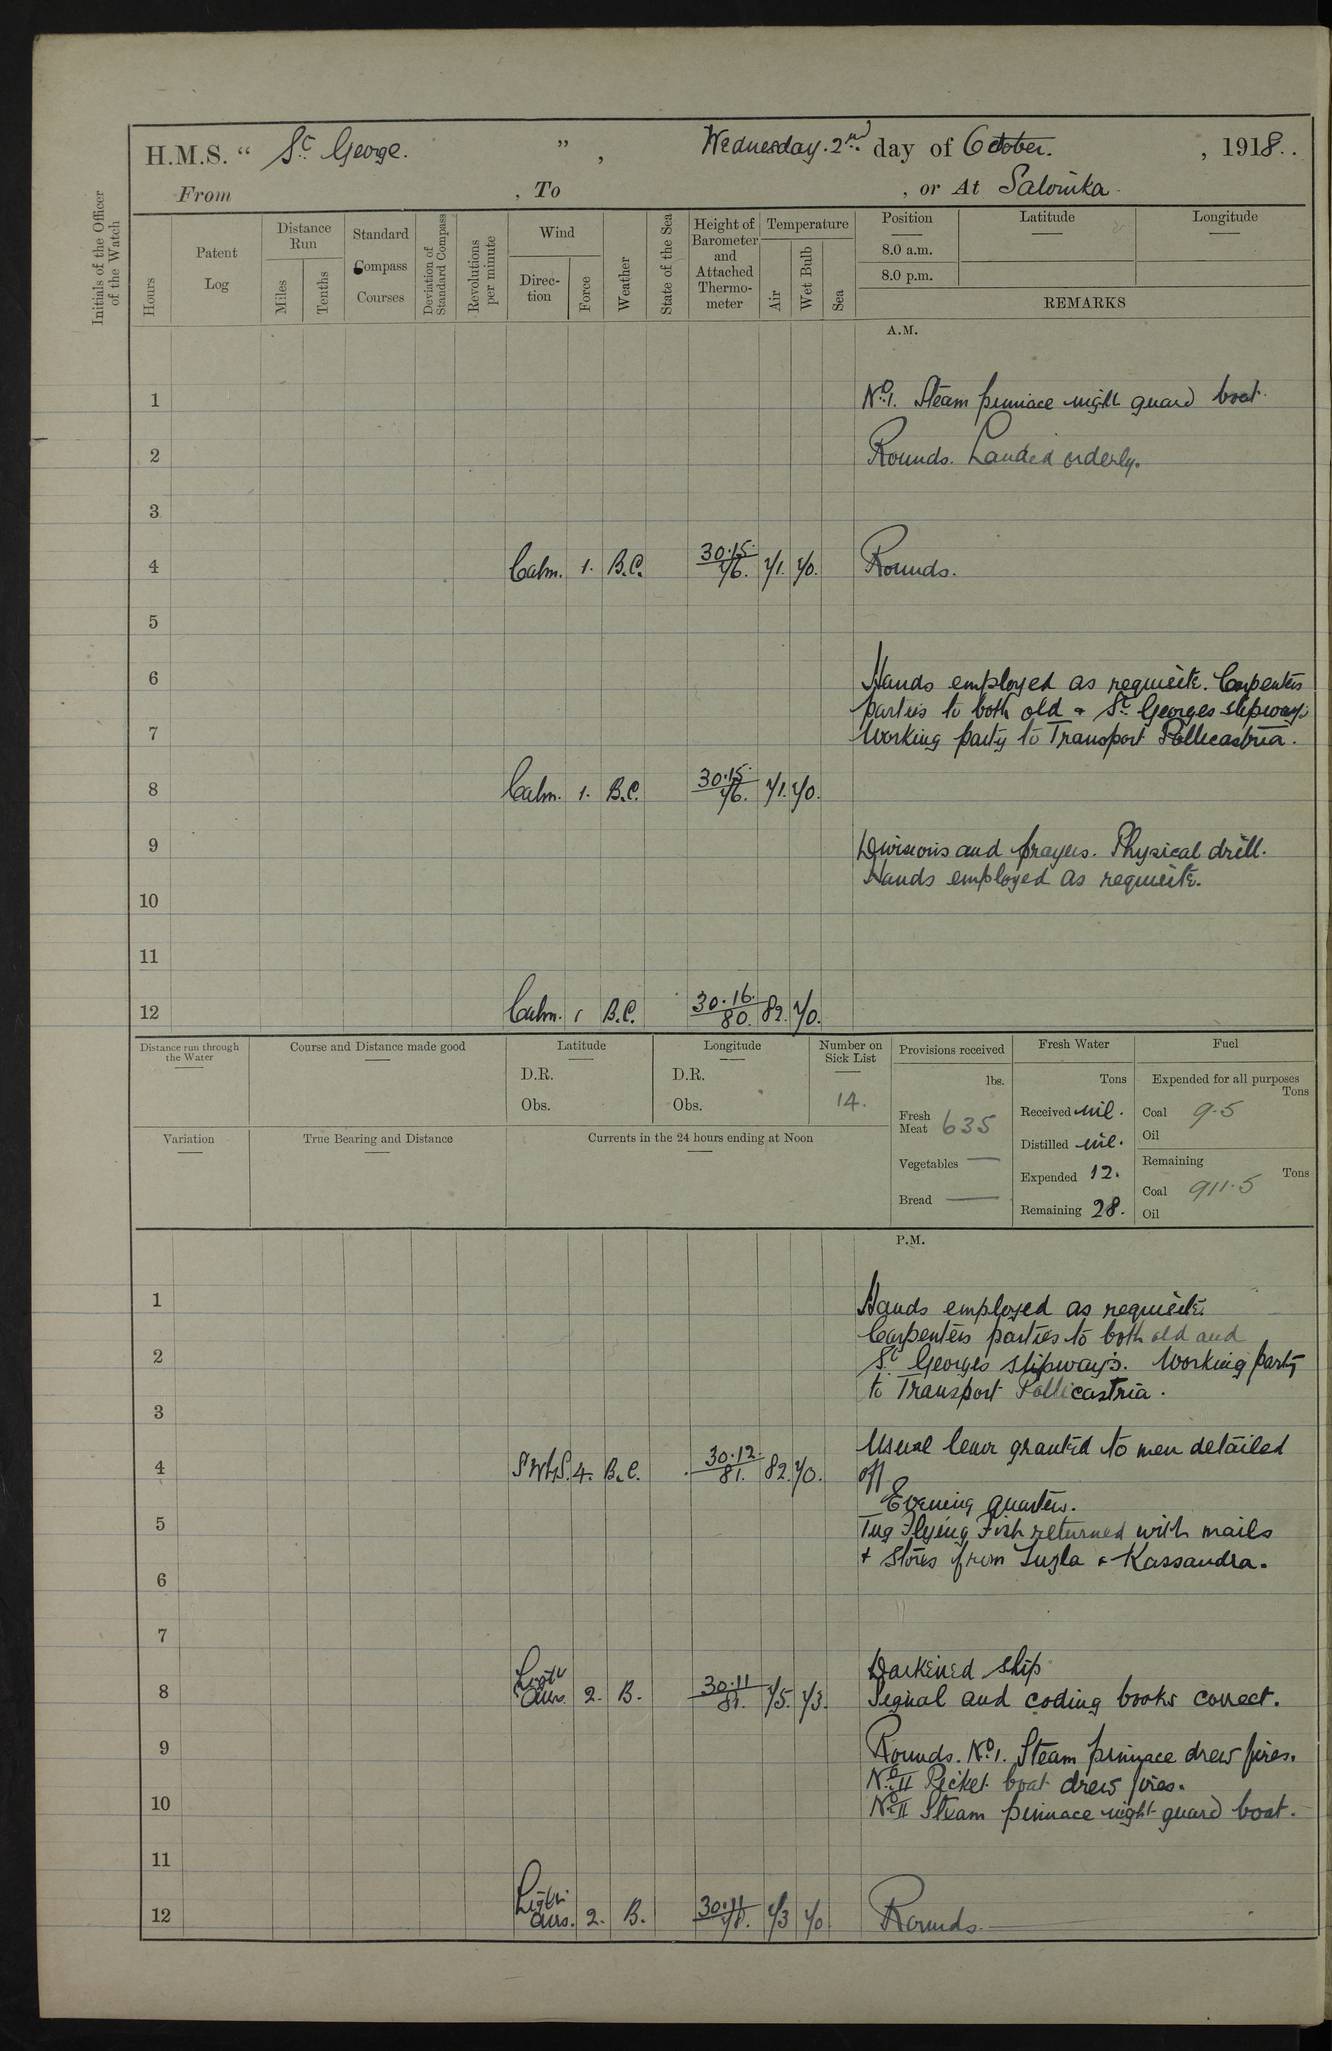 H.M.S. “ St George. ” , Wednesday. 2nd day of October. , 1918..
From , To , or At Salonika.
Initials of the Officer of the Watch
Hours
Patent Log
Distance Run
Miles
Tenths
Standard Compass Courses
Deviation of Standard Compass
Revolutions per minute
Wind
Direction
Force
Weather
State of the Sea
Height of Barometer and Attached Thermometer
Temperature
Air
Wet Bulb
Sea
Position Latitude Longitude
8.0 a.m.
8.0 p.m.
REMARKS
A.M.
1 No 1. Steam pinnace night guard boat.
2 Rounds. Landed orderly.
3
4 Calm. 1. B.C. 30.15. 76. 71. 70. Rounds.
5
6 Hands employed as requisite. Carpenters
parties to both old & St Georges slipways.
7 Working party to Transport Pollicastria.
8 Calm. 1. B.C. 30.15. 76. 71. 70.
9 Divisions and prayers. Physical drill.
Hands employed as requisite.
10
11
12 Calm. 1 B.C. 30.16. 80. 82. 70.
Distance run through the Water
Course and Distance made good
Latitude
D.R.
Obs.
Longitude
D.R.
Obs.
Number on Sick List
14.
Provisions received
lbs.
Fresh Meat 635
Vegetables —
Bread —
Fresh Water
Tons
Received nil.
Distilled nil.
Expended 12.
Remaining 28.
Fuel
Expended for all purposes
Tons
Coal 9.5
Oil
Remaining
Tons
Coal 911.5
Oil
Variation
True Bearing and Distance
Currents in the 24 hours ending at Noon
P.M.
1 Hands employed as requisite.
Carpenters parties to both old and
2 St Georges slipways. Working party
to Transport Pollicastria.
3
Usual leave granted to men detailed
4 SWbS. 4. B.C. 30.12. 81. 82. 70. off
Evening quarters.
5 Tug Flying Fish returned with mails
& stores from Tuzla & Kassandra.
6
7
Darkened ship
8 Light airs. 2. B. 30.11 81. 75. 73. Signal and coding books correct.
9 Rounds. No 1. Steam pinnace drew fires.
No II Picket boat drew fires.
10 No II Steam pinnace night guard boat.
11
12 Light airs. 2. B. 30.11 78. 73 70 Rounds.